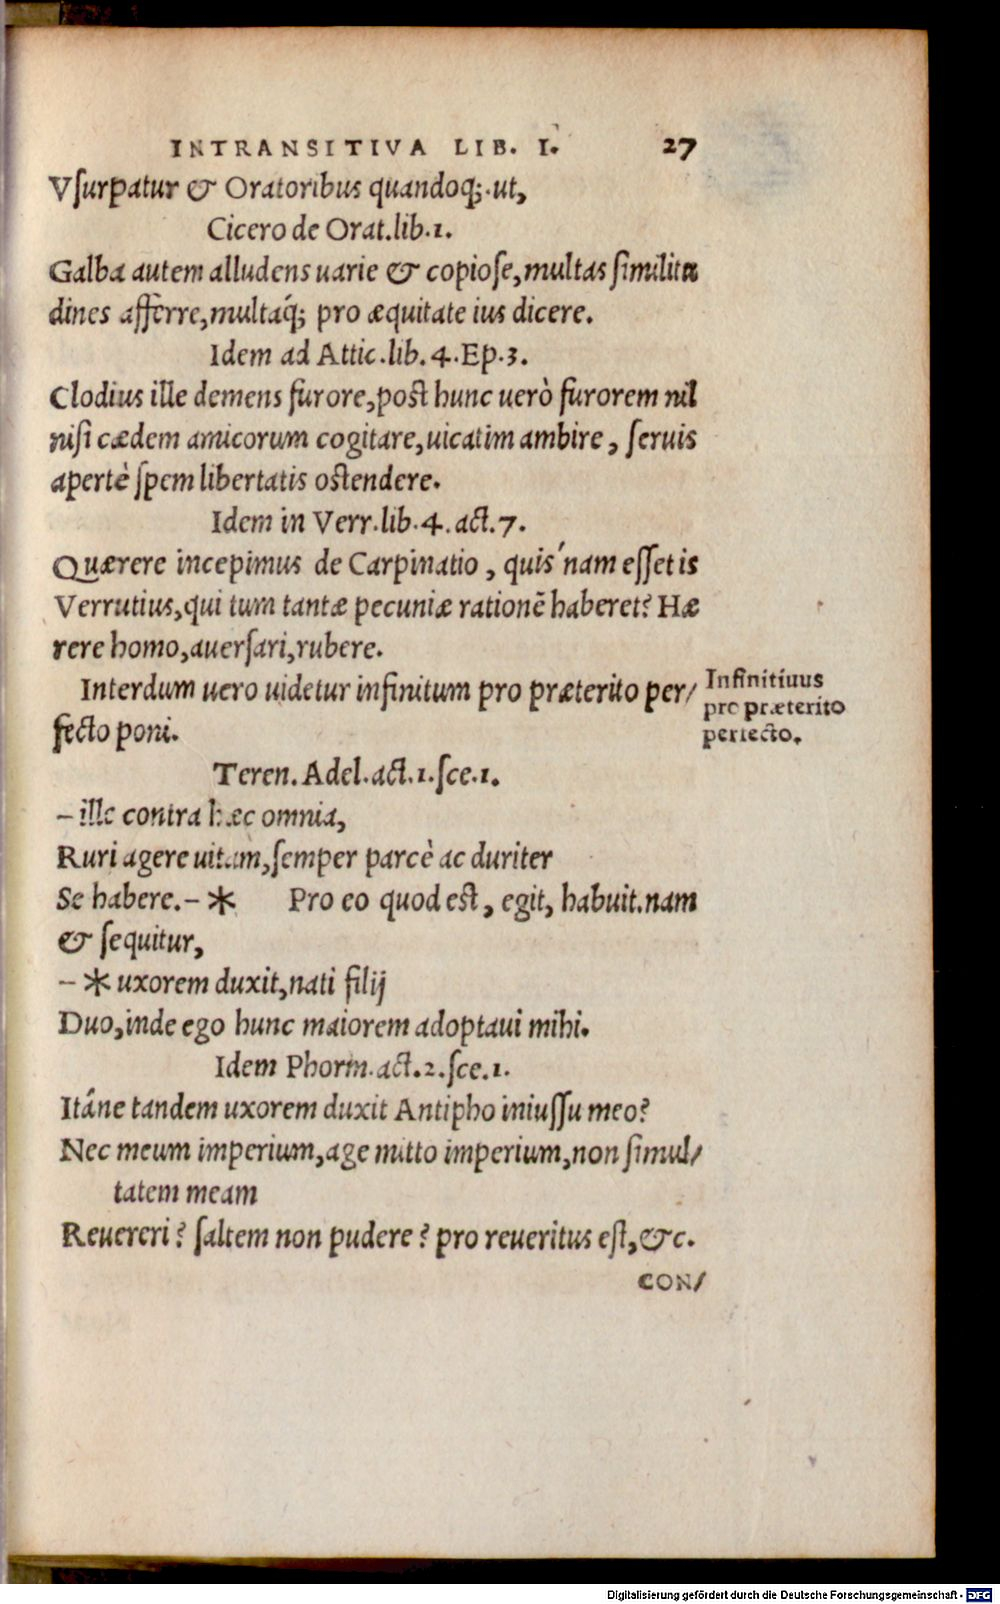 INTRANSITIVA LIB. I. 27
Vſurpatur & Oratoribus quandoq;. ut,
Cicero de Orat. lib. 1.
Galba autem alludens uarie & copioſe, multas ſimilitu
dines afferre, multaq́; pro æquitate ius dicere.
Idem ad Attic. lib. 4. Ep. 3.
Clodius ille demens furore, poſt hunc uerò furorem nil
niſi cædem amicorum cogitare, uicatim ambire, ſeruis
apertè ſpem libertatis oſtendere.
Idem in Verr. lib. 4. act. 7.
Quærere incepimus de Carpinatio, quis'nam eſſet is
Verrutius, qui tum tantæ pecuniæ rationē haberet? Hæ
rere homo, auerſari, rubere.
Interdum uero uidetur infinitum pro præterito per/
fecto poni.
Infinitiuus
pro præterito
perfecto.
Teren. Adel. act. 1. ſce. 1.
– ille contra hæc omnia,
Ruri agere uitam, ſemper parcè ac duriter
Se habere. – * Pro eo quod eſt, egit, habuit. nam
& ſequitur,
– * uxorem duxit, nati filij
Duo, inde ego hunc maiorem adoptaui mihi.
Idem Phorm. act. 2. ſce. 1.
Itáne tandem uxorem duxit Antipho iniuſſu meo?
Nec meum imperium, age mitto imperium, non ſimul/
tatem meam
Reuereri? ſaltem non pudere? pro reueritus eſt, &c.
CON/
Digitalisierung gefördert durch die Deutsche Forschungsgemeinschaft - DFG